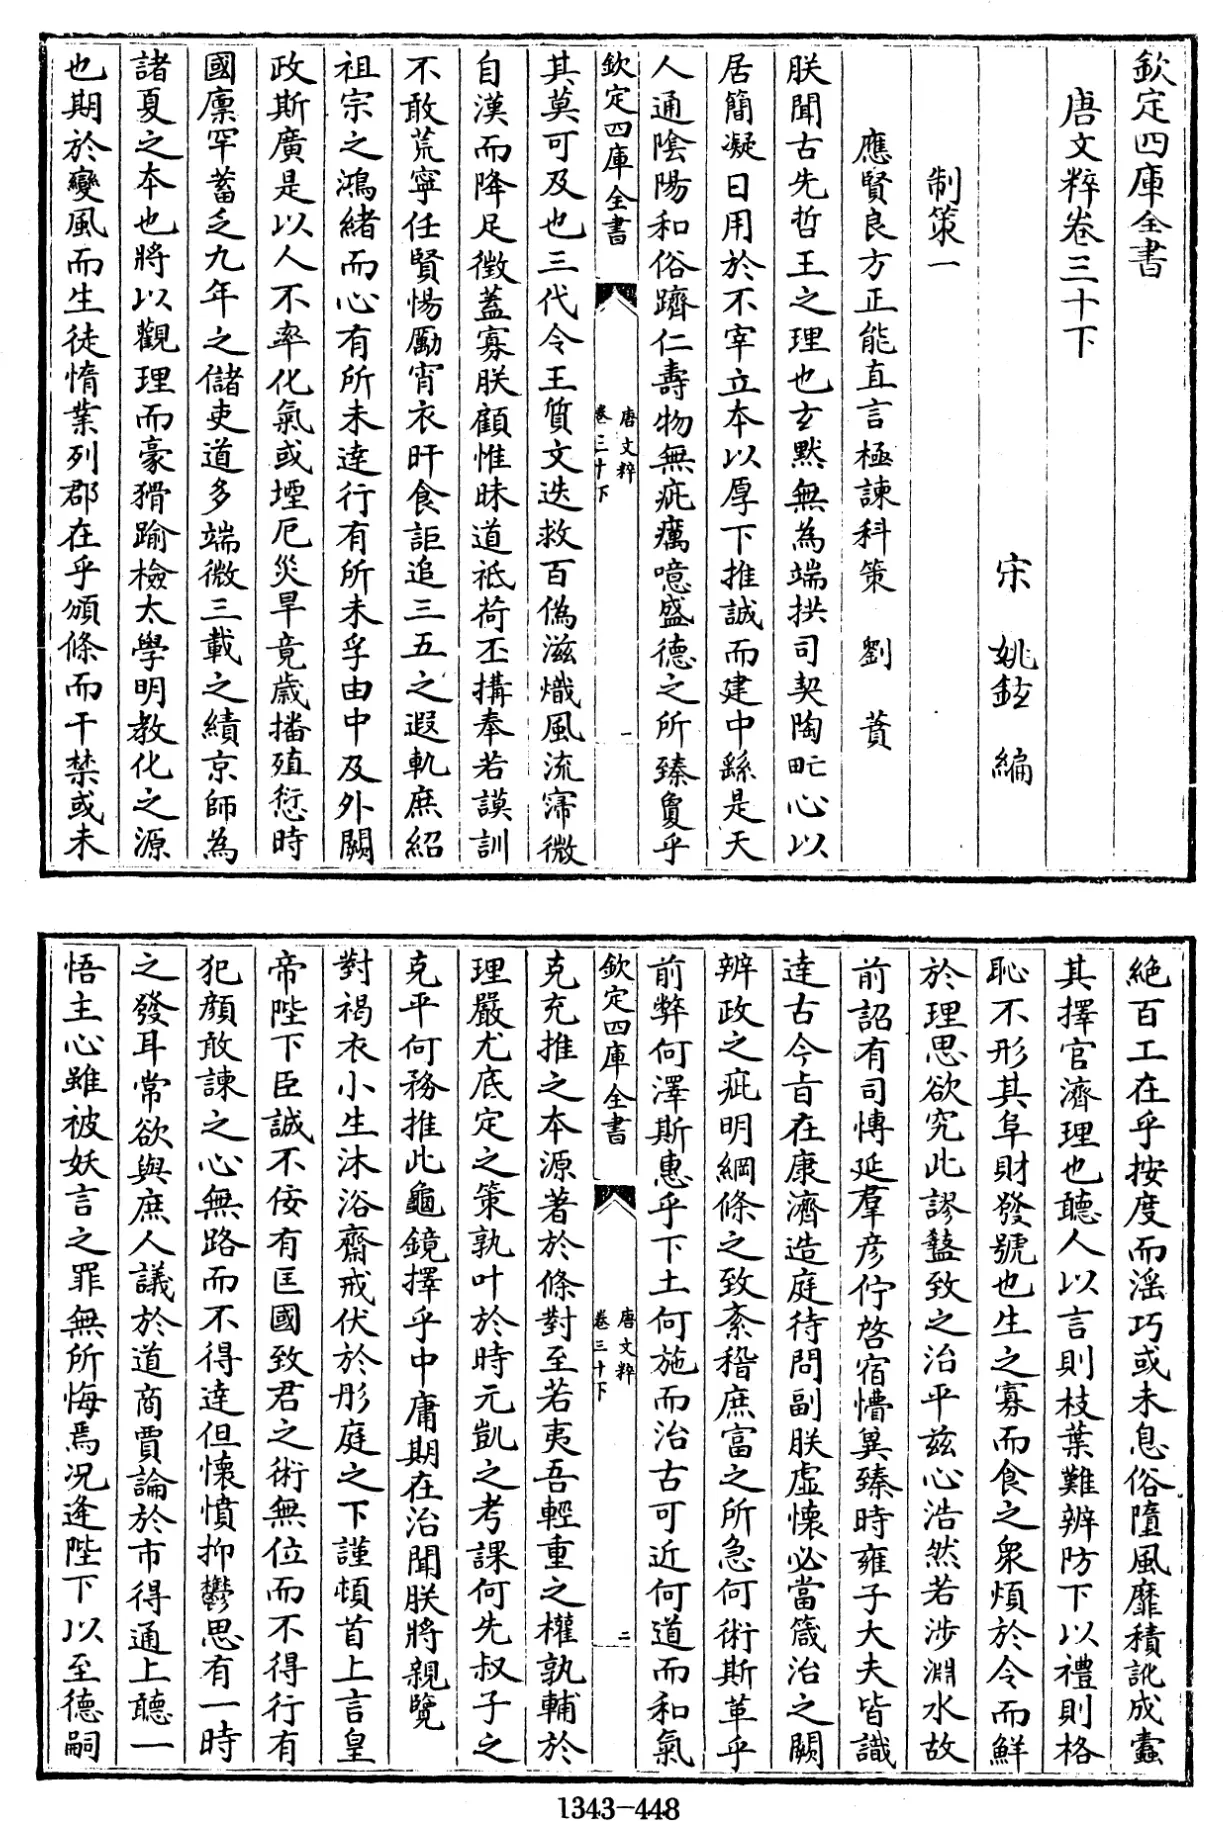 欽定四庫全書
唐文粹卷三十下
宋 姚鉉 編
制策一
應賢良方正能直言極諫科策 劉 蕡
朕聞古先哲王之理也玄默無為端拱司契陶甿心以
居簡凝日用於不宰立本以厚下推誠而建中繇是天
人通陰陽和俗躋仁壽物無疵癘噫盛德之所臻敻乎
欽定四庫全書
唐文粹
卷三十下
一
其莫可及也三代令王質文迭救百偽滋熾風流寖微
自漢而降足徴蓋寡朕顧惟昧道祇荷丕搆奉若謨訓
不敢荒寧任賢惕勵宵衣旰食詎追三五之遐軌庶紹
祖宗之鴻緒而心有所未達行有所未孚由中及外闕
政斯廣是以人不率化氣或堙厄災旱竟歲播殖愆時
國廩罕蓄乏九年之儲吏道多端微三載之績京師為
諸夏之本也將以觀理而豪猾踰檢太學明教化之源
也期於變風而生徒惰業列郡在乎頒條而干禁或未
絶百工在乎按度而淫巧或未息俗隳風靡積訛成蠧
其擇官濟理也聽人以言則枝葉難辨防下以禮則格
恥不形其阜財發號也生之寡而食之衆煩於令而鮮
於理思欲究此謬盭致之治平兹心浩然若涉淵水故
前詔有司博延羣彦佇啓宿懵兾臻時雍子大夫皆識
達古今㫖在康濟造庭待問副朕虚懷必當箴治之闕
辨政之疵明綱條之致紊稽庶富之所急何術斯革乎
前弊何澤斯惠乎下土何施而治古可近何道而和氣
欽定四庫全書
唐文粹
卷三十下
二
克充推之本源著於條對至若夷吾輕重之權孰輔於
理嚴尤底定之策孰叶於時元凱之考課何先叔子之
克平何務推此龜鏡擇乎中庸期在洽聞朕將親覽
對褐衣小生沐浴齋戒伏於彤庭之下謹頓首上言皇
帝陛下臣誠不佞有匡國致君之術無位而不得行有
犯顔敢諫之心無路而不得達但懷憤抑鬱思有一時
之發耳常欲與庶人議於道商賈論於市得通上聽一
悟主心雖被妖言之罪無所悔焉况逢陛下以至德嗣
1343-448